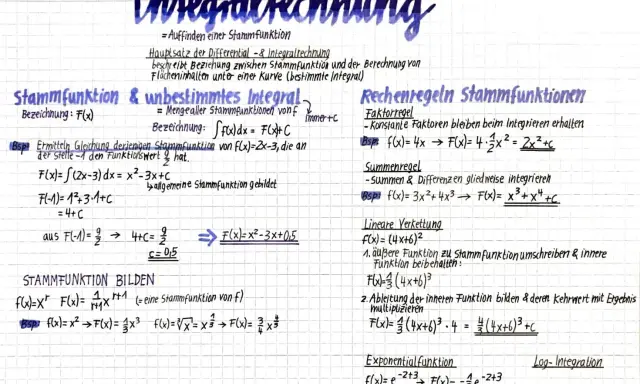 Integralrechnung
= Auffinden einer Stammfunktion
Hauptsatz der Differential -& Integralrechnung
beschreibt Beziehung zwischen Stammfunktion und der Berechnung von
Flächeninhalten unter einer Kurve (bestimmte Integral)
Stammfunktion & unbestimmtes Integral
Bezeichnung: F(x)
= Menge aller Stammfunktionen von f
immer +C
Bezeichnung: ∫f(x)dx = F(x)+C
Bsp: Ermitteln Gleichung derjenigen Stammfunktion von f(x)=2x-3, die an
der Stelle -1 den Funktionswert 9/2 hat.
F(x)=∫(2x-3)dx = x²-3x+C
↳allgemeine Stammfunktion gebildet
F(-1)= 1²+3·1+C
= 4+C
aus F(-1)= 9/2 → 4+C= 9/2 ⇒ F(x)=x²-3x+0,5
C=0,5
STAMMFUNKTION BILDEN
f(x)=x^r F(x)= 1/(r+1) x^(r+1) (= eine Stammfunktion von f)
Bsp: f(x)=x² → F(x)=1/3x³ f(x)=∛x = x^(1/3) → F(x)= 3/4 x^(4/3)
Rechenregeln Stammfunktionen
Faktorregel
-Konstante Faktoren bleiben beim Integrieren erhalten
Bsp: f(x)= 4x → F(x)= 4·1/2x² = 2x²+c
Summenregel
-Summen & Differenzen gliedweise integrieren
Bsp: f(x)= 3x²+4x³ → F(x)= x³+x⁴+C
Lineare Verkettung
f(x)= (4x+6)²
1. äußere Funktion zu Stammfunktion umschreiben & innere
Funktion beibehalten:
F(x)=1/3(4x+6)³
2. Ableitung der inneren Funktion bilden & deren Kehrwert mit Ergebnis
multiplizieren
F(x)= 1/3(4x+6)³·4 = 4/3(4x+6)³+C
Exponentialfunktion
Log- Integration